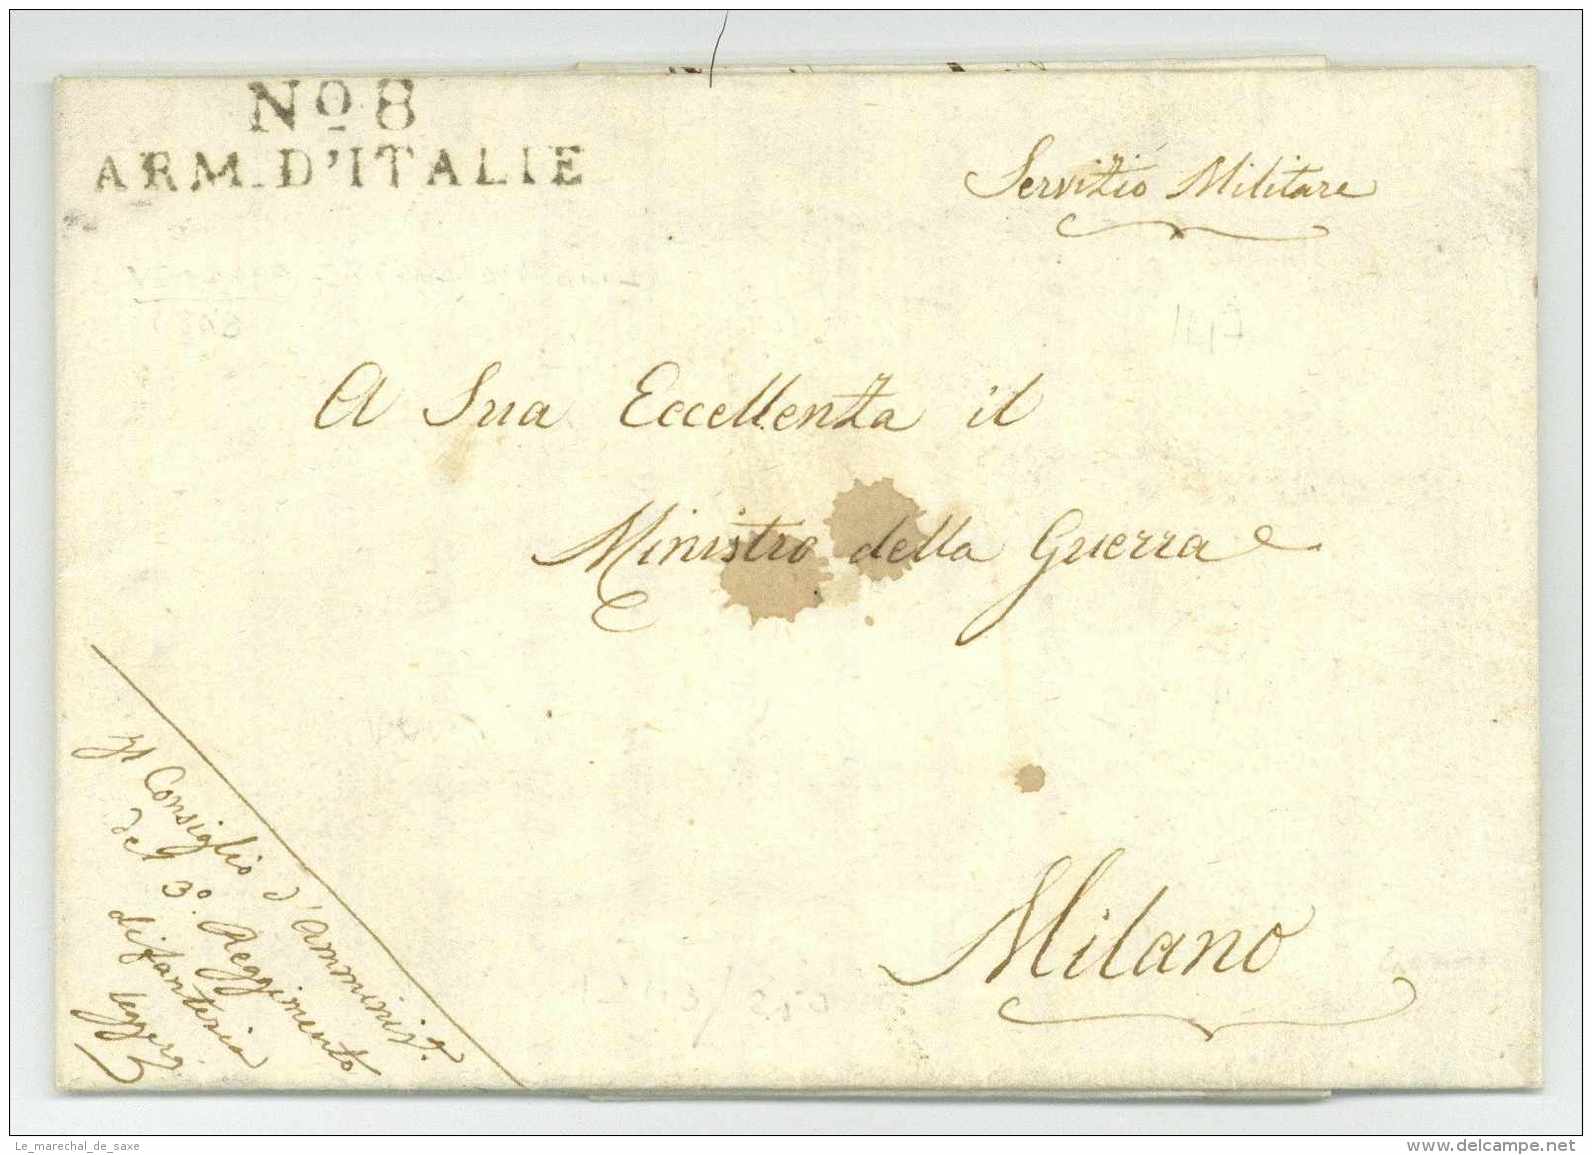 No. 8
ARM. D'ITALIE
Servizio Militare
A Sua Eccellenza il
Ministro della Guerra
Milano
Il Consiglio d'Amminist.e
del 3.o Reggimento
di fanteria
leggera.
Le_marechal_de_saxe
www.delcampe.net